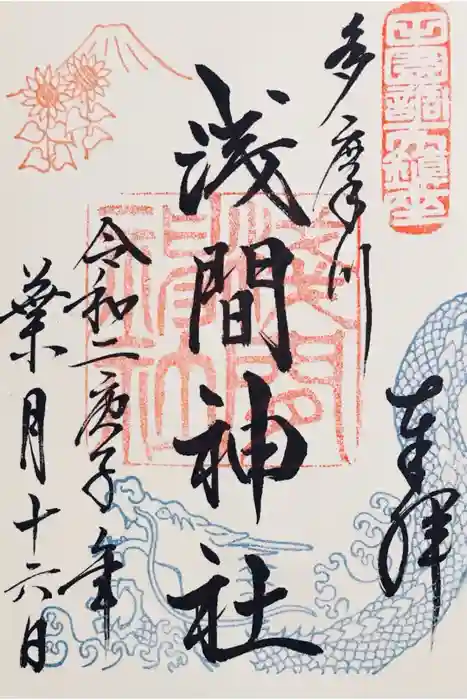 奉拝
多摩川
浅間神社
令和二庚子年
葉月十六日